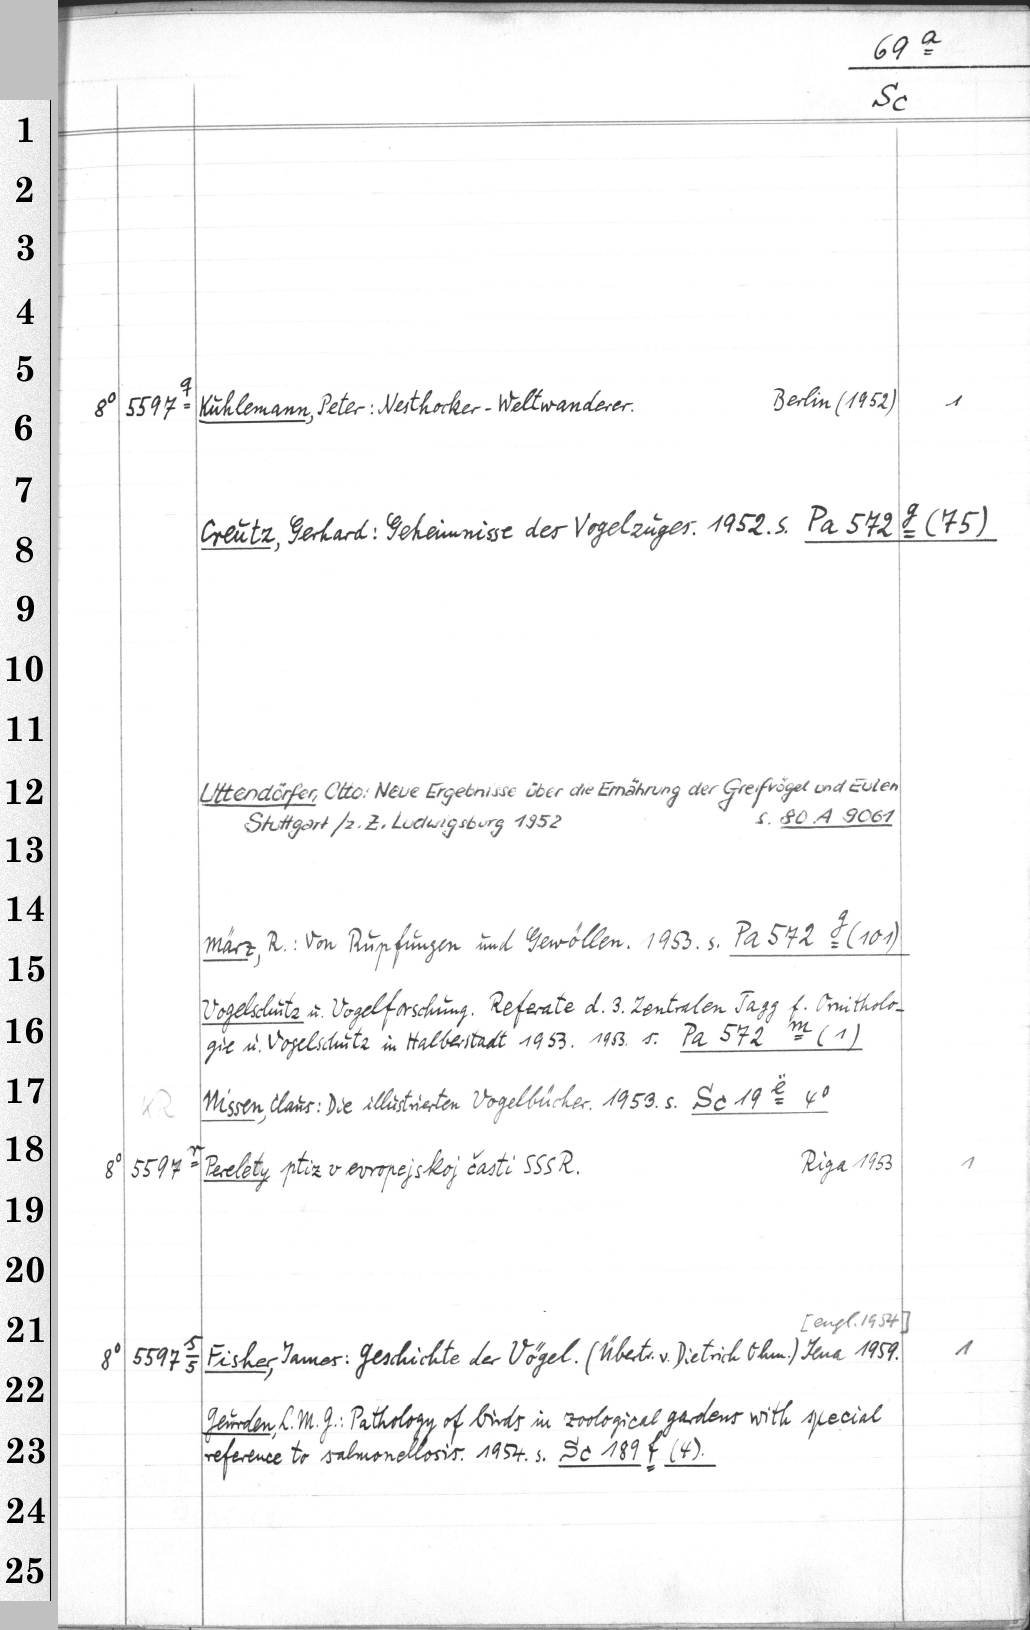 69 a
Sc
1
2
3
4
5
8° 5597 q Kuhlemann, Peter: Nesthocker - Weltwanderer. Berlin (1952) 1
6
7
Creutz, Gerhard: Geheimnisse des Vogelzuges. 1952. s. Pa 572 g (75)
8
9
10
11
12 Uttendörfer, Otto: Neue Ergebnisse über die Ernährung der Greifvögel und Eulen
Stuttgart /z. Z. Ludwigsburg 1952 s. 80 A 9061
13
14
März, R.: Von Rupfungen und Gewöllen. 1953. s. Pa 572 g (101)
15
Vogelschutz u. Vogelforschung. Referate d. 3. Zentralen Tagg f. Ornitholo-
16 gie u. Vogelschutz in Halberstadt 1953. 1953. s. Pa 572 m (1)
17 Nissen, Claus: Die illustrierten Vogelbücher. 1953. s. Sc 19 ë 4°
18 8° 5597 r Perelety ptiz v evropejskoj časti SSSR. Riga 1953 1
19
20
21 [engl. 1954]
8° 5597 s/5 Fisher, James: Geschichte der Vögel. (Übertr. v. Dietrich Ohm.) Jena 1959. 1
22
Geurden, L. M. G.: Pathology of birds in zoological gardens with special
23 reference to salmonellosis. 1954. s. Sc 189 f (4).
24
25